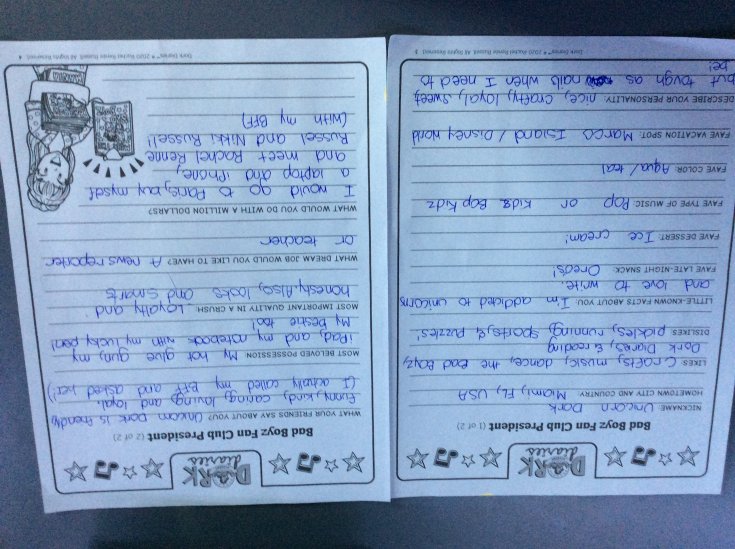 DORK
diaries
Bad Boyz Fan Club President (1 of 2)
NICKNAME: Unicorn Dork
HOMETOWN CITY AND COUNTRY: Miami, FL, USA
LIKES: Crafts, music, dance, the Bad Boyz,
Dork Diaries, & reading
DISLIKES: pickles, running, sports, & puzzles!
LITTLE-KNOWN FACTS ABOUT YOU: I'm addicted to unicorns
and love to write.
FAVE LATE-NIGHT SNACK: Oreos!
FAVE DESSERT: Ice cream!
FAVE TYPE OF MUSIC: Pop or Kidz Bop Kidz
FAVE COLOR: Aqua/teal
FAVE VACATION SPOT: Marco Island / Disney world
DESCRIBE YOUR PERSONALITY: nice, crafty, loyal, sweet,
but tough as nails when I need to
be!
Dork Diaries™ © 2020 Rachel Renée Russell. All Rights Reserved. 3
DORK
diaries
Bad Boyz Fan Club President (2 of 2)
WHAT YOUR FRIENDS SAY ABOUT YOU? Unicorn Dork is friendly,
funny, kind, caring, loving, and loyal.
(I actually called my BFF and asked her!)
MOST BELOVED POSSESSION My hot glue gun, my
iPad, and my notebook with my lucky pen!
My bestie too!
MOST IMPORTANT QUALITY IN A CRUSH: Loyalty and
honesty. Also, looks and smarts
WHAT DREAM JOB WOULD YOU LIKE TO HAVE? A news reporter
or teacher
WHAT WOULD YOU DO WITH A MILLION DOLLARS?
I would go to Paris, buy myself
a laptop and iPhone,
and meet Rachel Renne
Russel and Nikki Russel!
(with my BFF)
Dork Diaries™ © 2020 Rachel Renée Russell. All Rights Reserved. 4